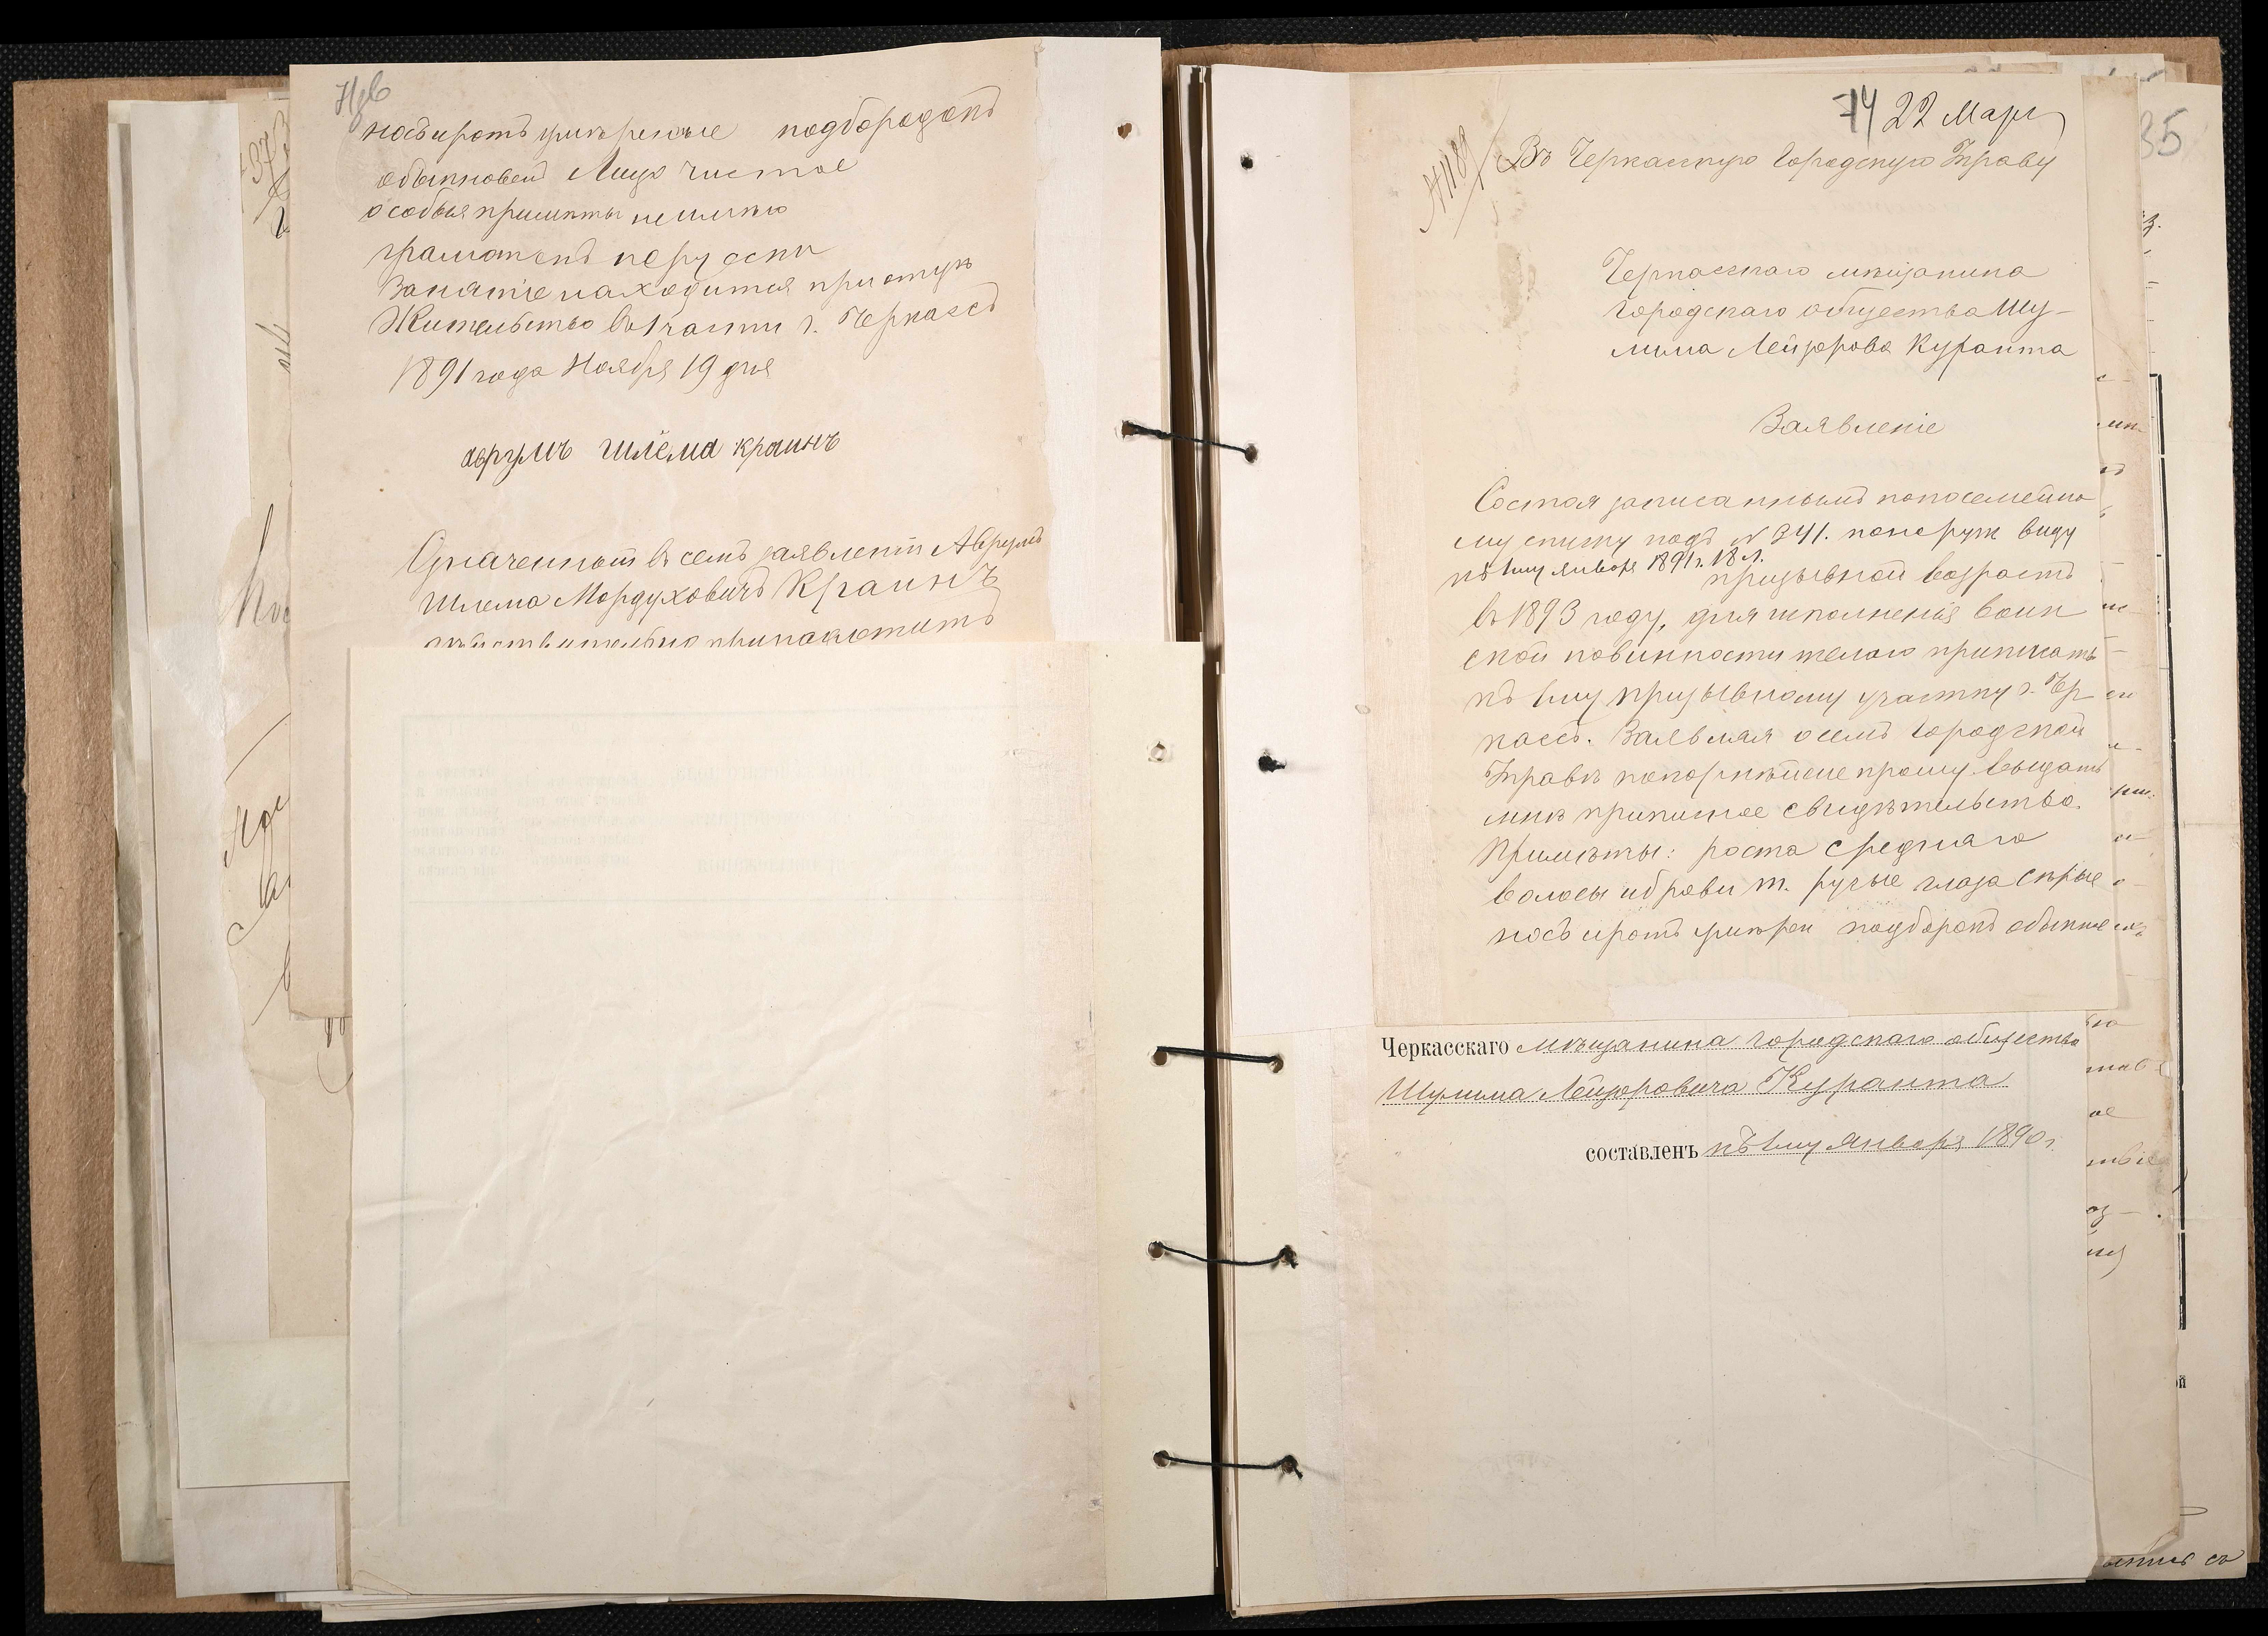 носъ и ротъ умѣренные подбородокъ
обыкновен Лицо чистое
особыя примѣты не имѣю
грамотенъ по русски
Занятіе находится при отцѣ
Жительство въ 1 части г. Черкассъ
1891 года Ноября 19 дня
аврумъ шлёма краинъ
Означенный въ семъ заявленіи Аврумъ
Шлема Мордуховичъ Краинъ
дѣйствительно принадлежитъ
74 22 Март
№ 1189
Въ Черкасскую Городскую Управу
Черкасскаго мѣщанина
городскаго общества Шу-
лима Лейзорова Куранта
Заявленіе
Состоя записаннымъ по посемейно
му списку подъ № 341. по наружн виду
къ 1му января 1891 г. 18 л.
призывной возрастъ
въ 1893 году, для исполненія воин
ской повинности желаю приписать
къ 1му призывному участку г. Чер
кассъ. Заявляя о семъ Городской
Управѣ покорнѣйше прошу выдать
мнѣ приписное свидѣтельство.
Примѣты: роста средняго
волосы и брови т. русые глаза сѣрые
носъ и ротъ умѣрен подборокъ обыкнов
Черкасскаго мѣщанина городскаго общества
Шулима Лейзоровича Куранта
составленъ къ 1му января 1890 г.
35